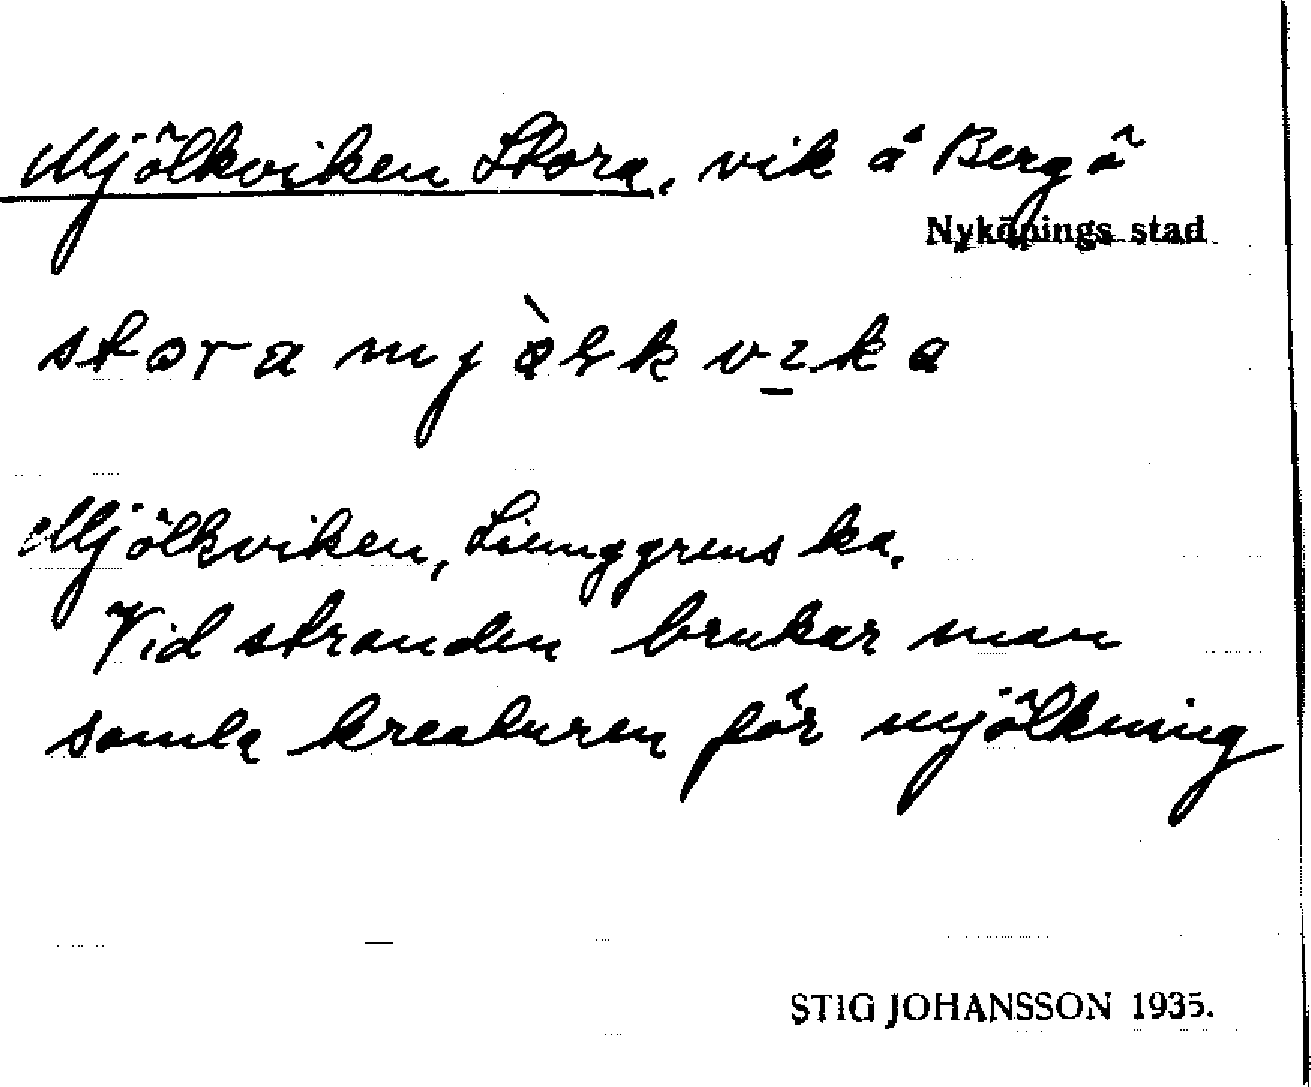 Mjölkviken Stora, vik å Bergö
Nyköpings stad
stora mjòlkvika
Mjölkviken, Ljunggrenska.
Vid stranden brukar man
samla kreaturen för mjölkning
STIG JOHANSSON 1935.